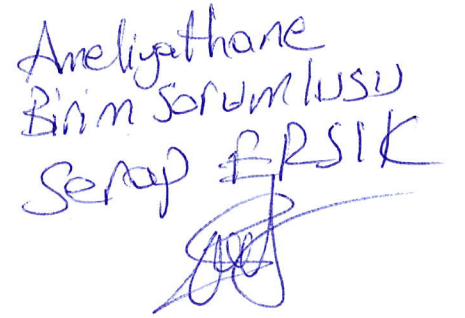 Ameliyathane
Birim Sorumlusu
Serap ERSIK